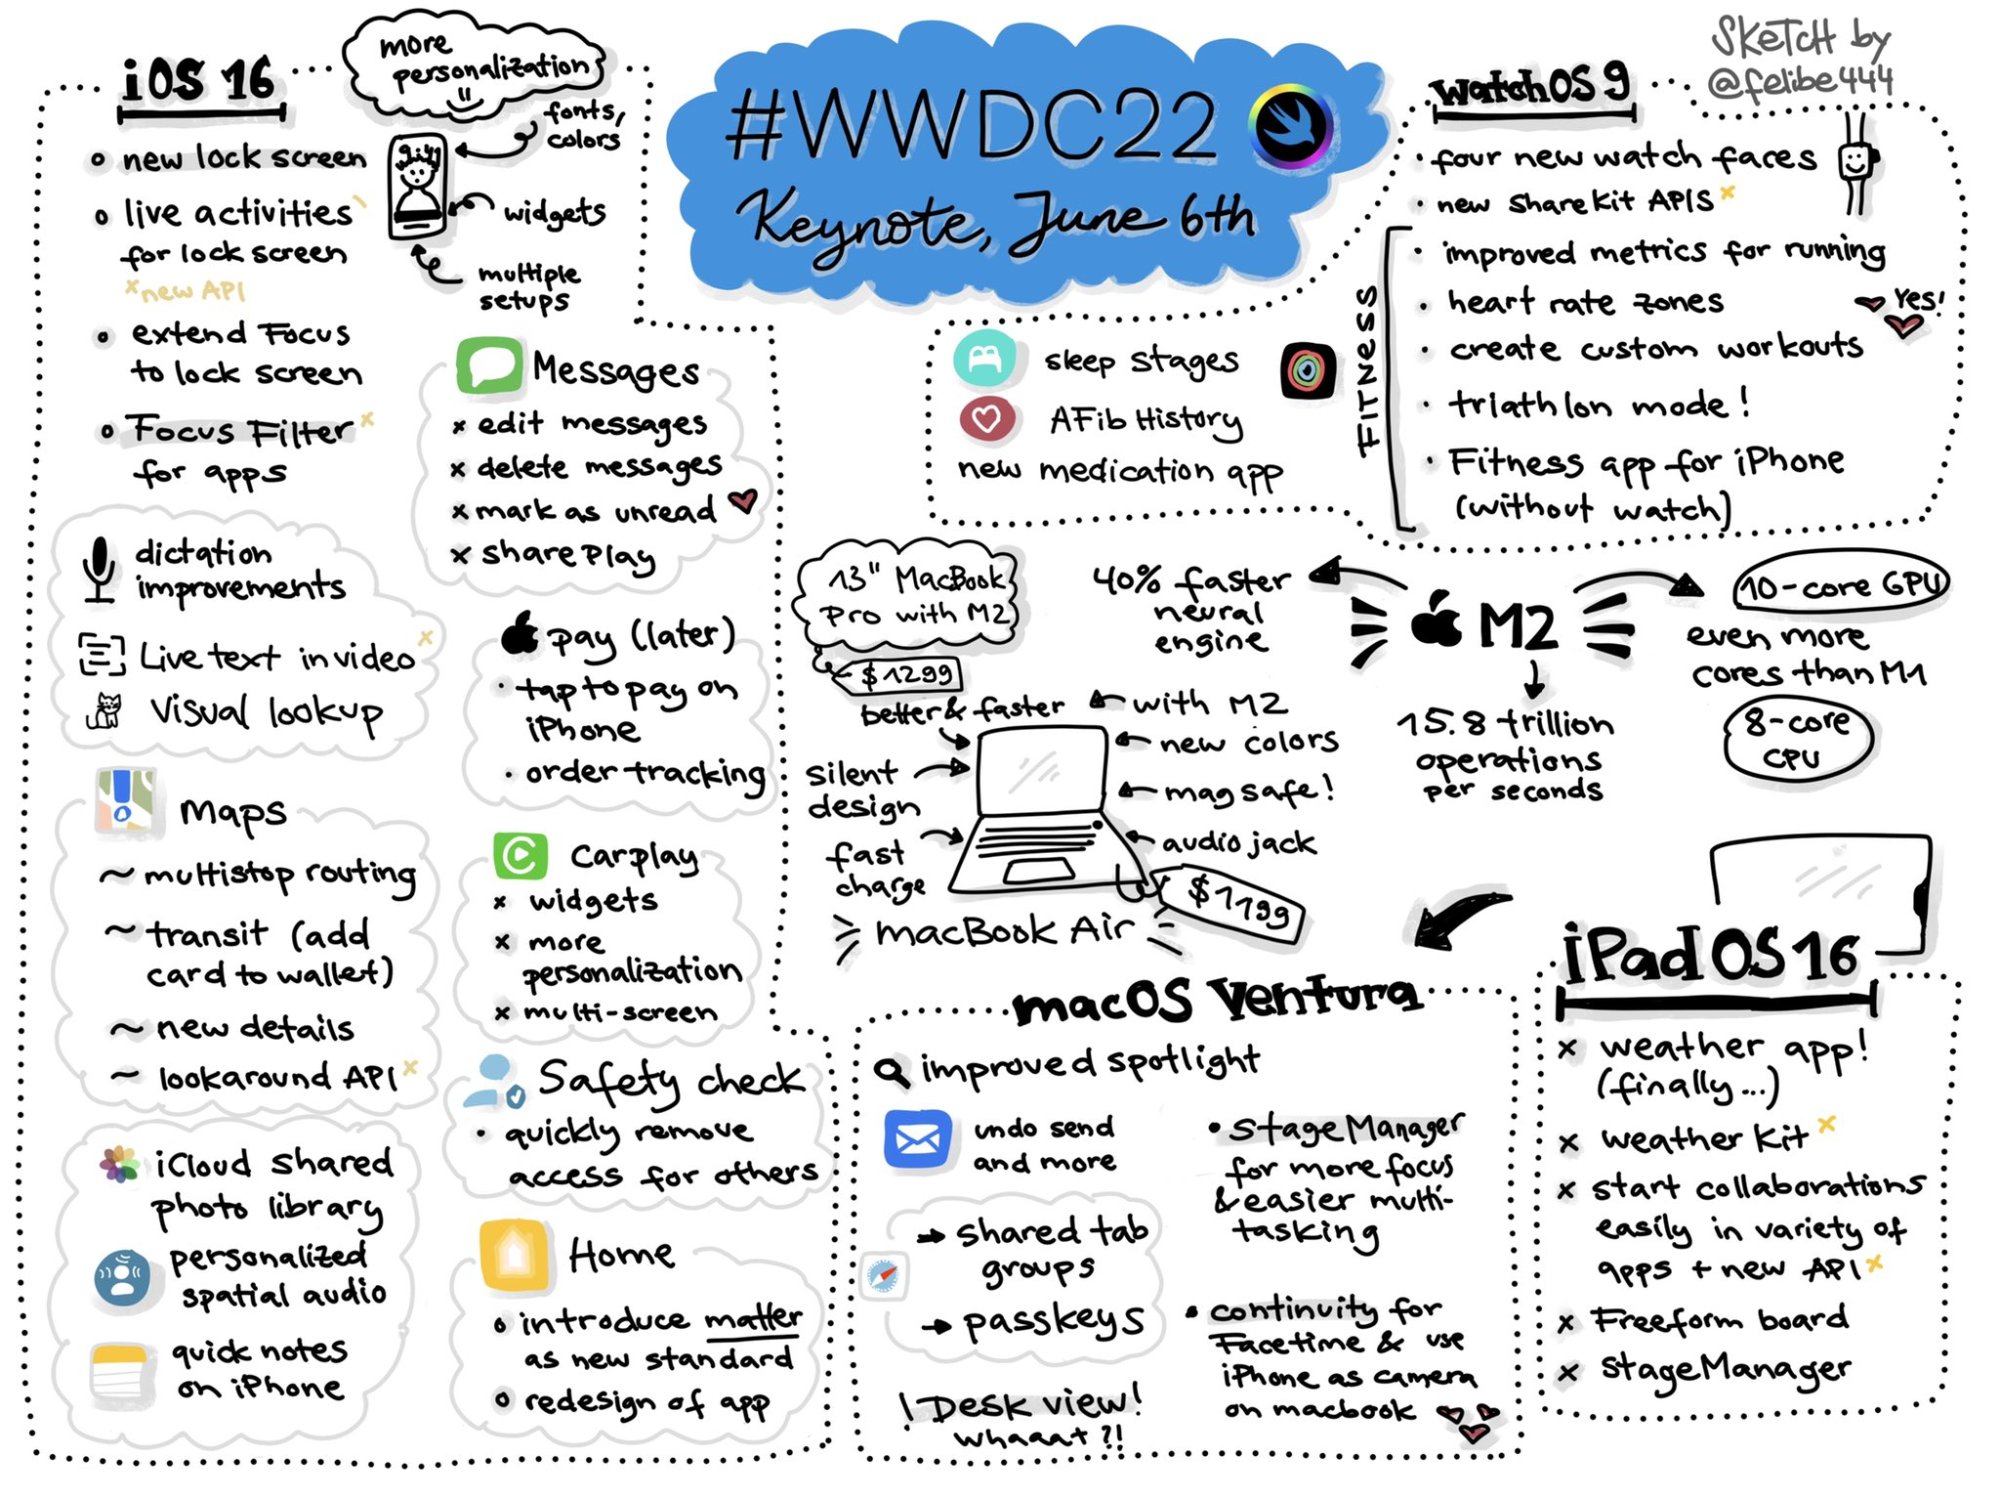 iOS 16
more
personalization
fonts,
colors
widgets
multiple
setups
new lock screen
live activities
for lock screen
x new API
extend Focus
to lock screen
Focus Filter x
for apps
dictation
improvements
Live text in video x
Visual lookup
Maps
~ multistop routing
~ transit (add
card to wallet)
~ new details
~ lookaround API x
iCloud shared
photo library
personalized
spatial audio
quick notes
on iPhone
Messages
x edit messages
x delete messages
x mark as unread
x share Play
pay (later)
· tap to pay on
iPhone
· order tracking
Carplay
x widgets
x more
personalization
x multi-screen
Safety check
· quickly remove
access for others
Home
introduce matter
as new standard
redesign of app
#WWDC22
Keynote, June 6th
SKETCH by
@felibe444
watchOS 9
· four new watch faces
· new ShareKit APIS x
FITNESS
· improved metrics for running
· heart rate zones
Yes!
· create custom workouts
· triathlon mode!
· Fitness app for iPhone
(without watch)
sleep stages
AFib History
new medication app
13" MacBook
Pro with M2
$1299
40% faster
neural
engine
M2
10-core GPU
even more
cores than M1
8-core
CPU
15.8 trillion
operations
per seconds
better & faster
with M2
new colors
silent
design
magsafe!
fast
charge
audio jack
$1199
macBook Air
macOS Ventura
improved spotlight
undo send
and more
→ shared tab
groups
→ passkeys
! Desk view!
whaaat ?!
• StageManager
for more focus
& easier multi-
tasking
• continuity for
Facetime & use
iPhone as camera
on macbook
iPadOS 16
x weather app!
(finally...)
x weather Kit x
x start collaborations
easily in variety of
apps + new API x
x Freeform board
x StageManager